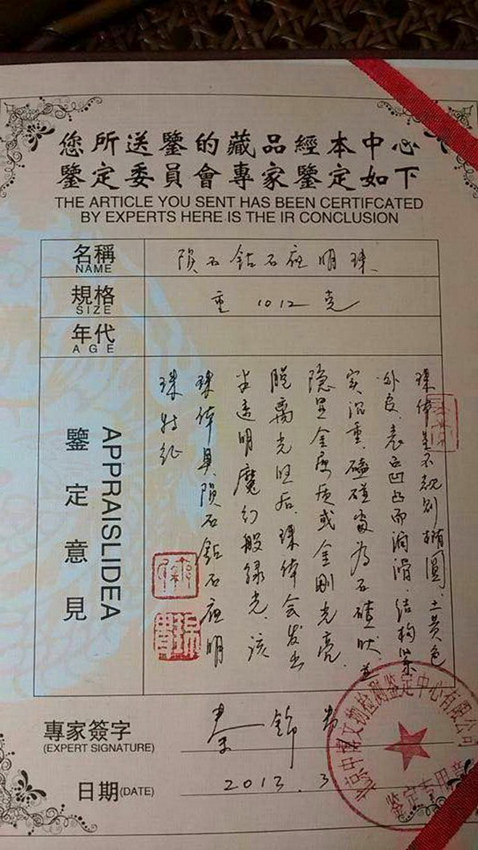 您所送鑒的藏品經本中心
鑒定委員會專家鑒定如下
THE ARTICLE YOU SENT HAS BEEN CERTIFCATED
BY EXPERTS HERE IS THE IR CONCLUSION
名稱
NAME
陨石钻石夜明珠
規格
SIZE
重 1012克
年代
AGE
鑒定意見
APPRAISLIDEA
珠体呈不规则椭圆、土黄色
外皮、表面凹凸而润滑、结构紧
实沉重、磕碰处为石碴状并
隐显金属质或金刚光亮
脱离光照后、珠体会发出
半透明魔幻般绿光、该
珠体具陨石钻石夜明
珠特征
專家簽字
(EXPERT SIGNATURE)
秦锦
日期(DATE)
2013.3
文物检测鉴定中心有限公司
鉴定专用章